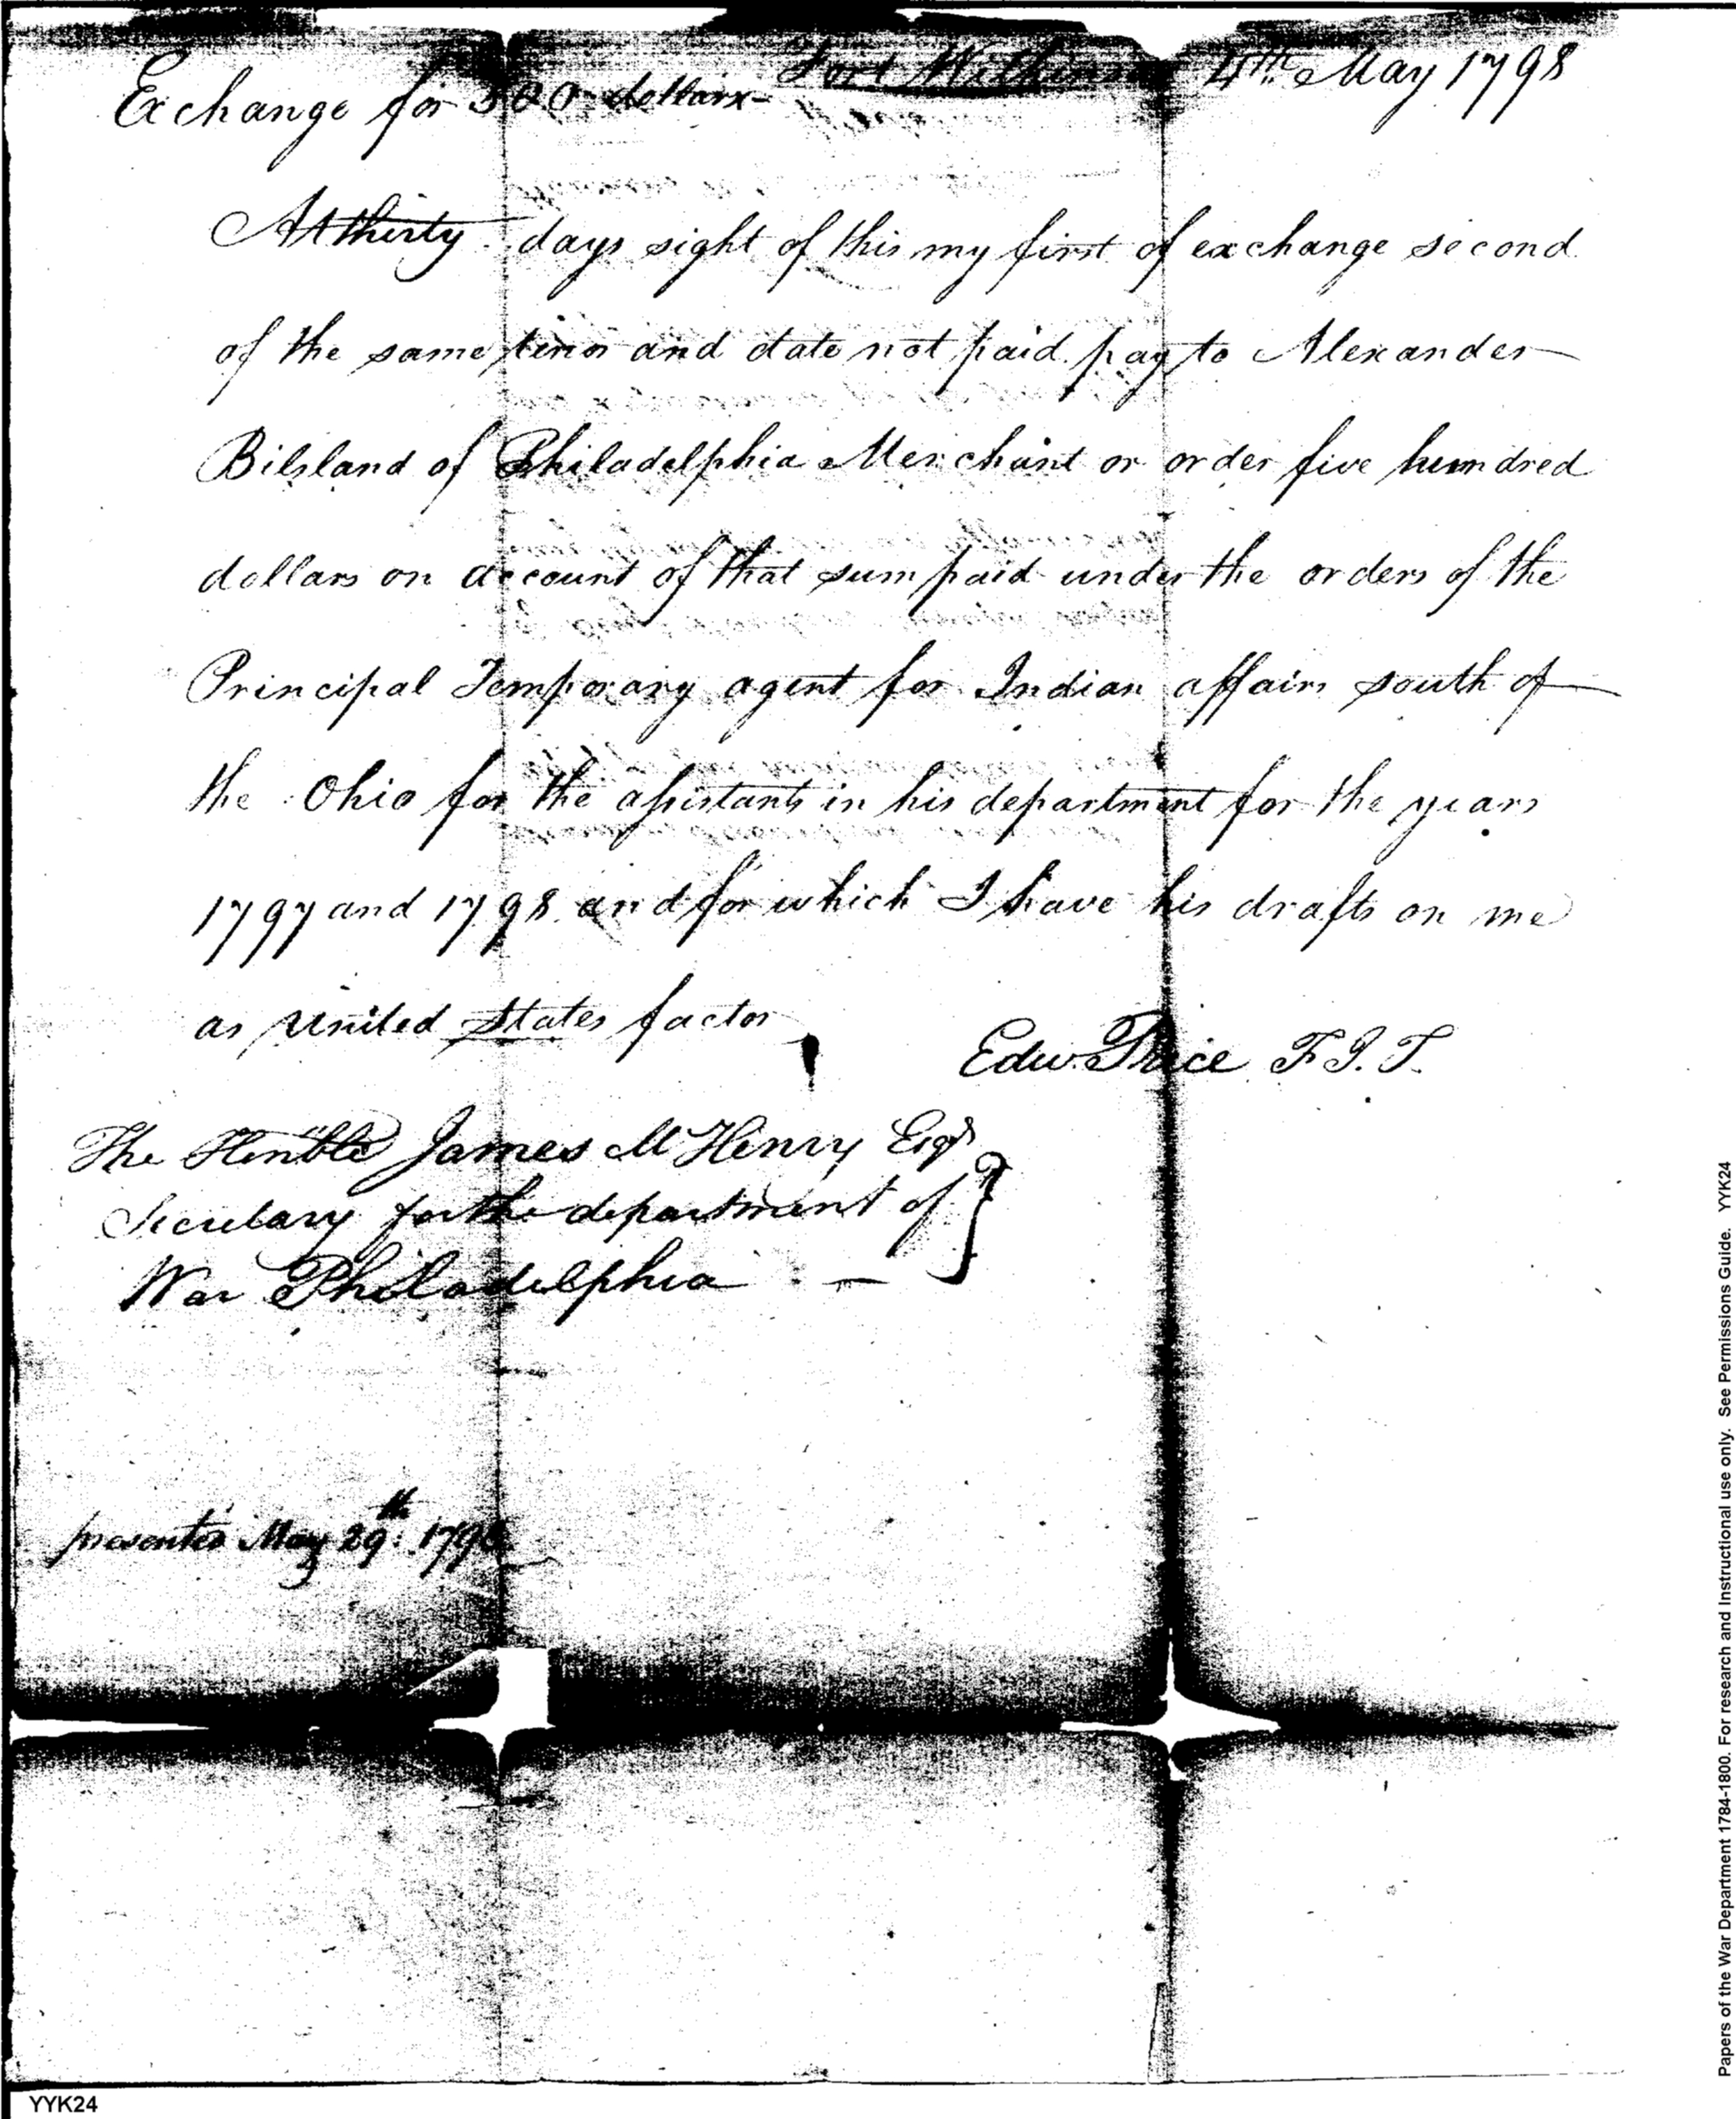 Exchange for 500 dollars - Fort Wilkinson 4th May 1798
At thirty days sight of this my first of exchange second
of the same tenor and date not paid pay to Alexander
Bilsland of Philadelphia Merchant or order five hundred
dollars on account of that sum paid under the orders of the
Principal Temporary agent for Indian affairs south of
the Ohio for the assistants in his department for the years
1797 and 1798 and for which I have his drafts on me
as United States factor
Edw. Price F.I.T.
The Honble James McHenry Esqr
Secretary for the department of
War Philadelphia -
presented May 29th: 1798
Papers of the War Department 1784-1800. For research and Instructional use only. See Permissions Guide. YYK24
YYK24